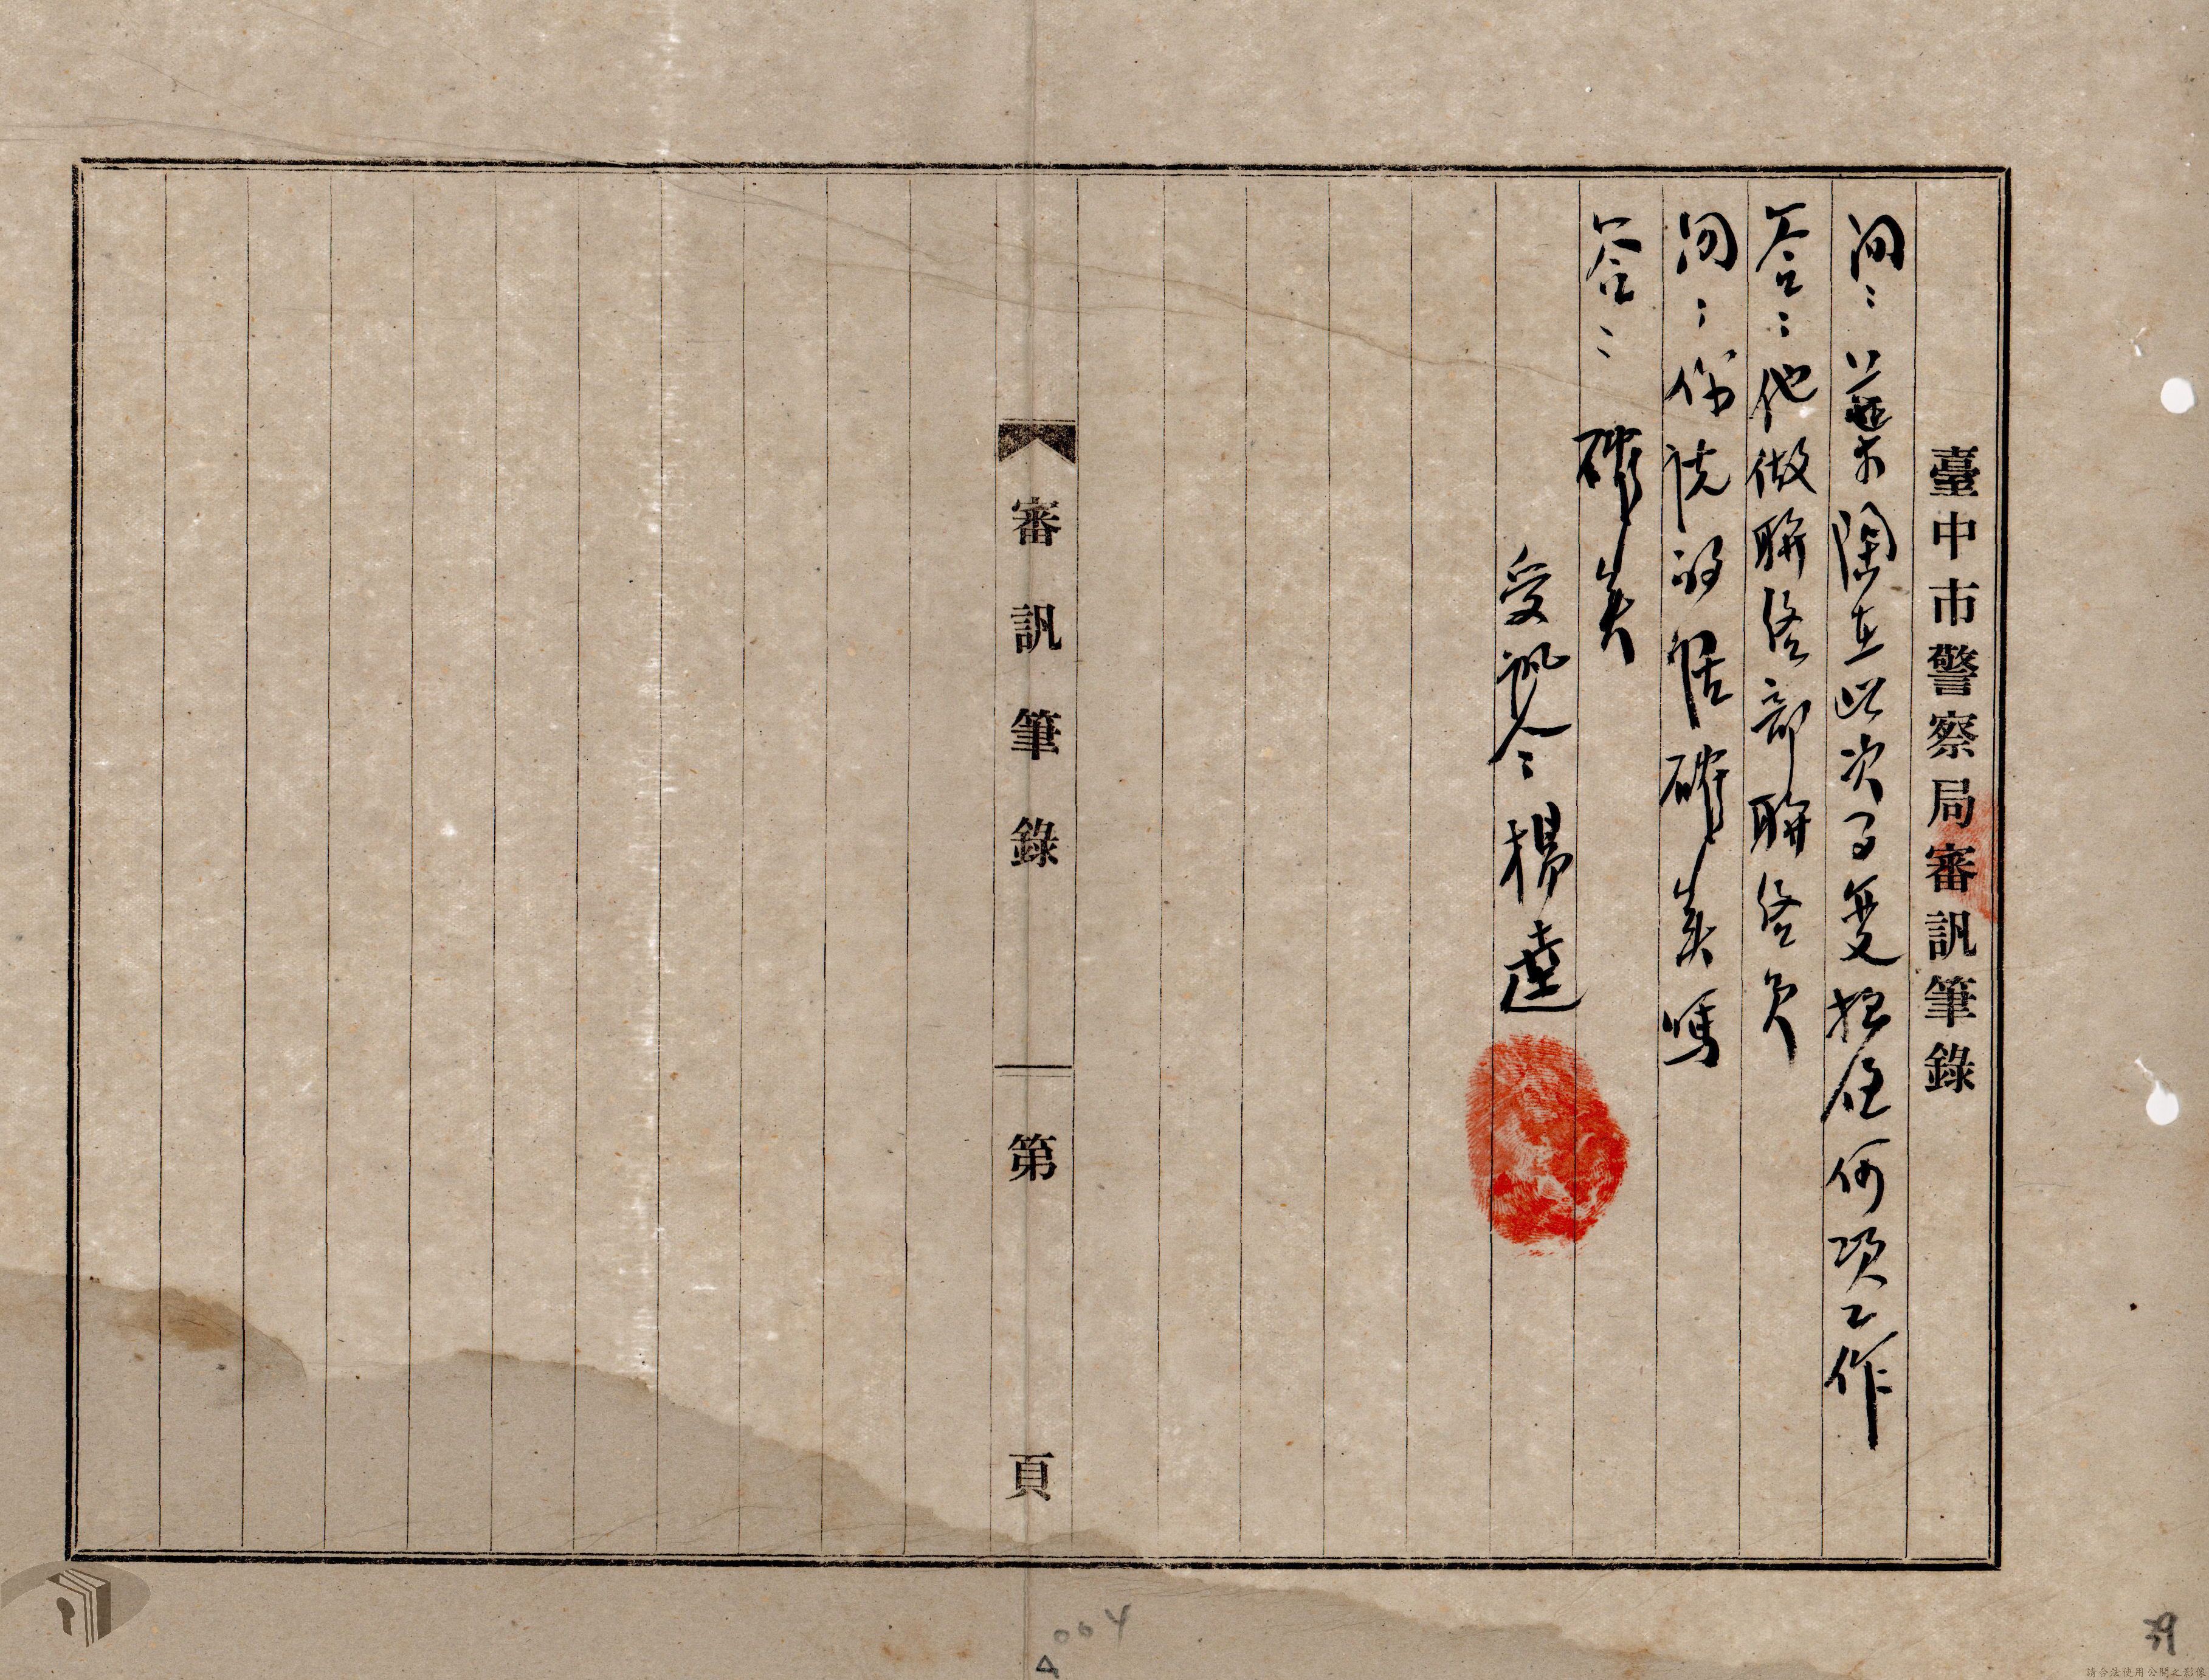 臺中市警察局審訊筆錄
問：葉陶在此次事變担任何項工作
答：他做聯絡部聯絡員
問：你說的話確實嗎
答：確實
受訊人：楊逵
審訊筆錄
第
頁
4004
39
請合法使用公開之影像